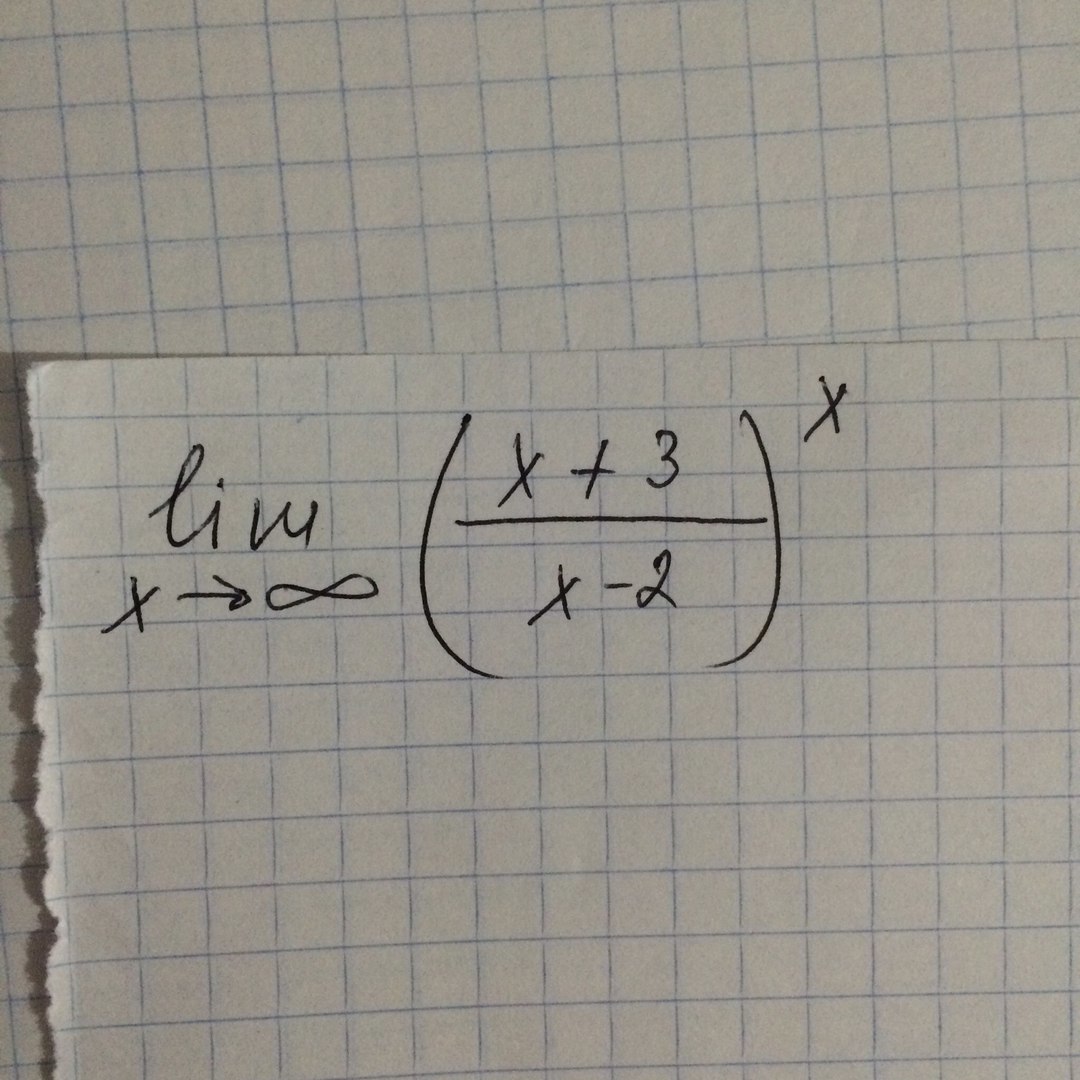 lim x→∞ ((x + 3)/(x - 2))^x